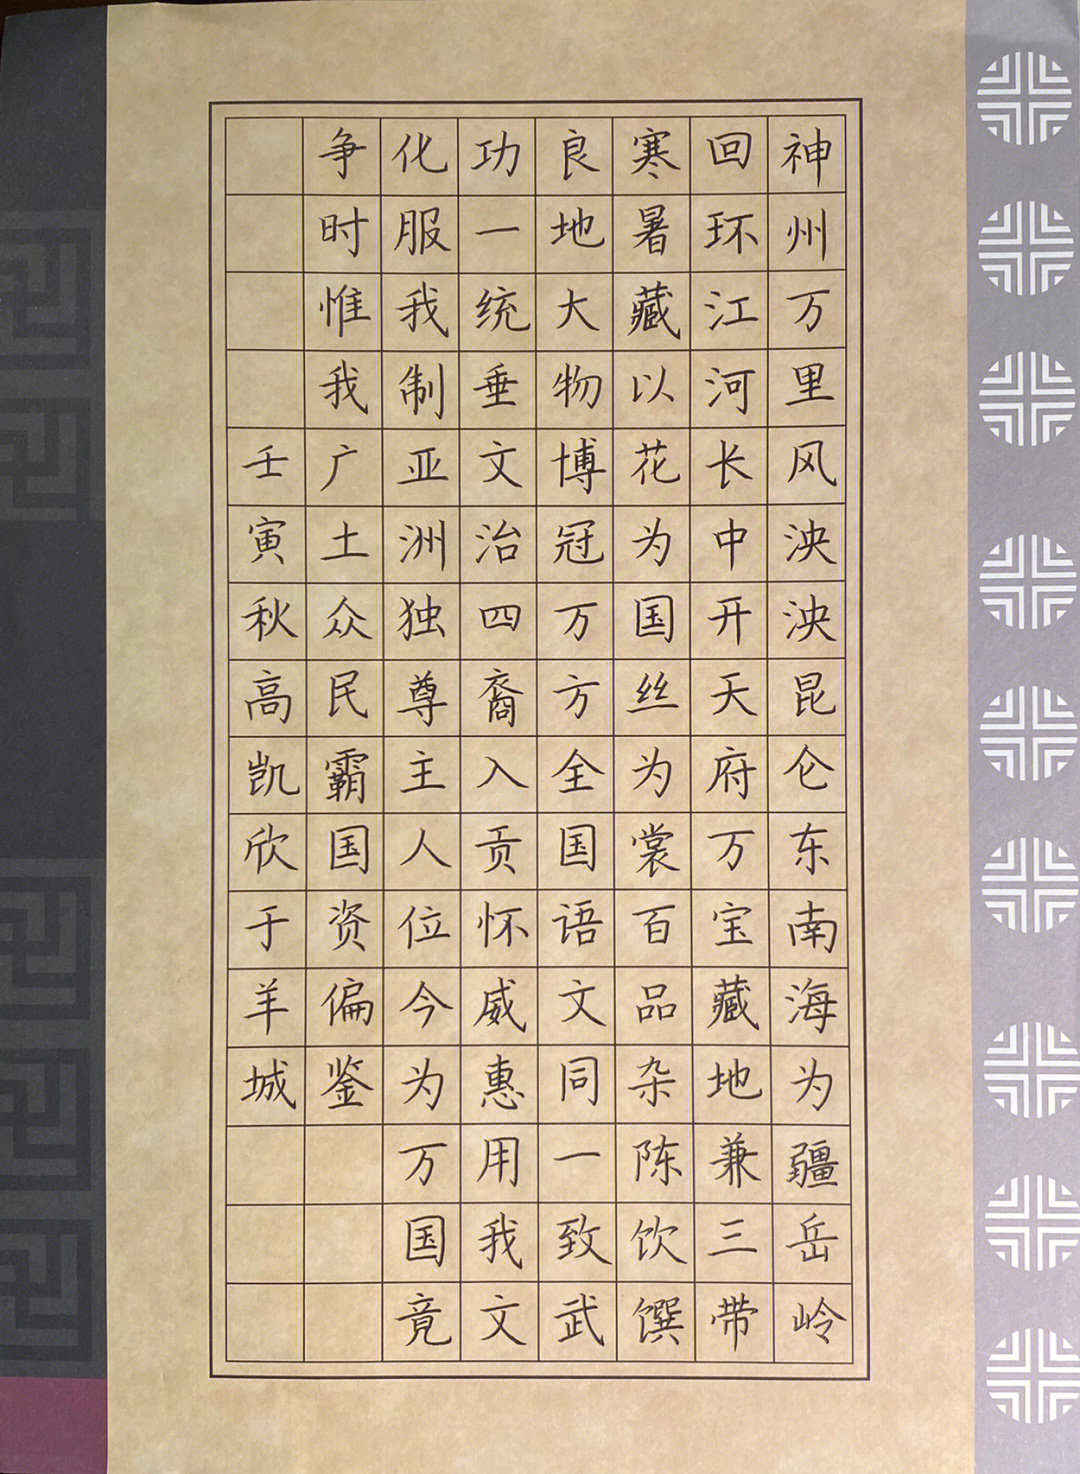 神州万里风泱泱昆仑东南海为疆岳岭
回环江河长中开天府万宝藏地兼三带
寒暑藏以花为国丝为裳百品杂陈饮馔
良地大物博冠万方全国语文同一致武
功一统垂文治四裔入贡怀威惠用我文
化服我制亚洲独尊主人位今为万国竟
争时惟我广土众民霸国资偏鉴
壬寅秋高凯欣于羊城